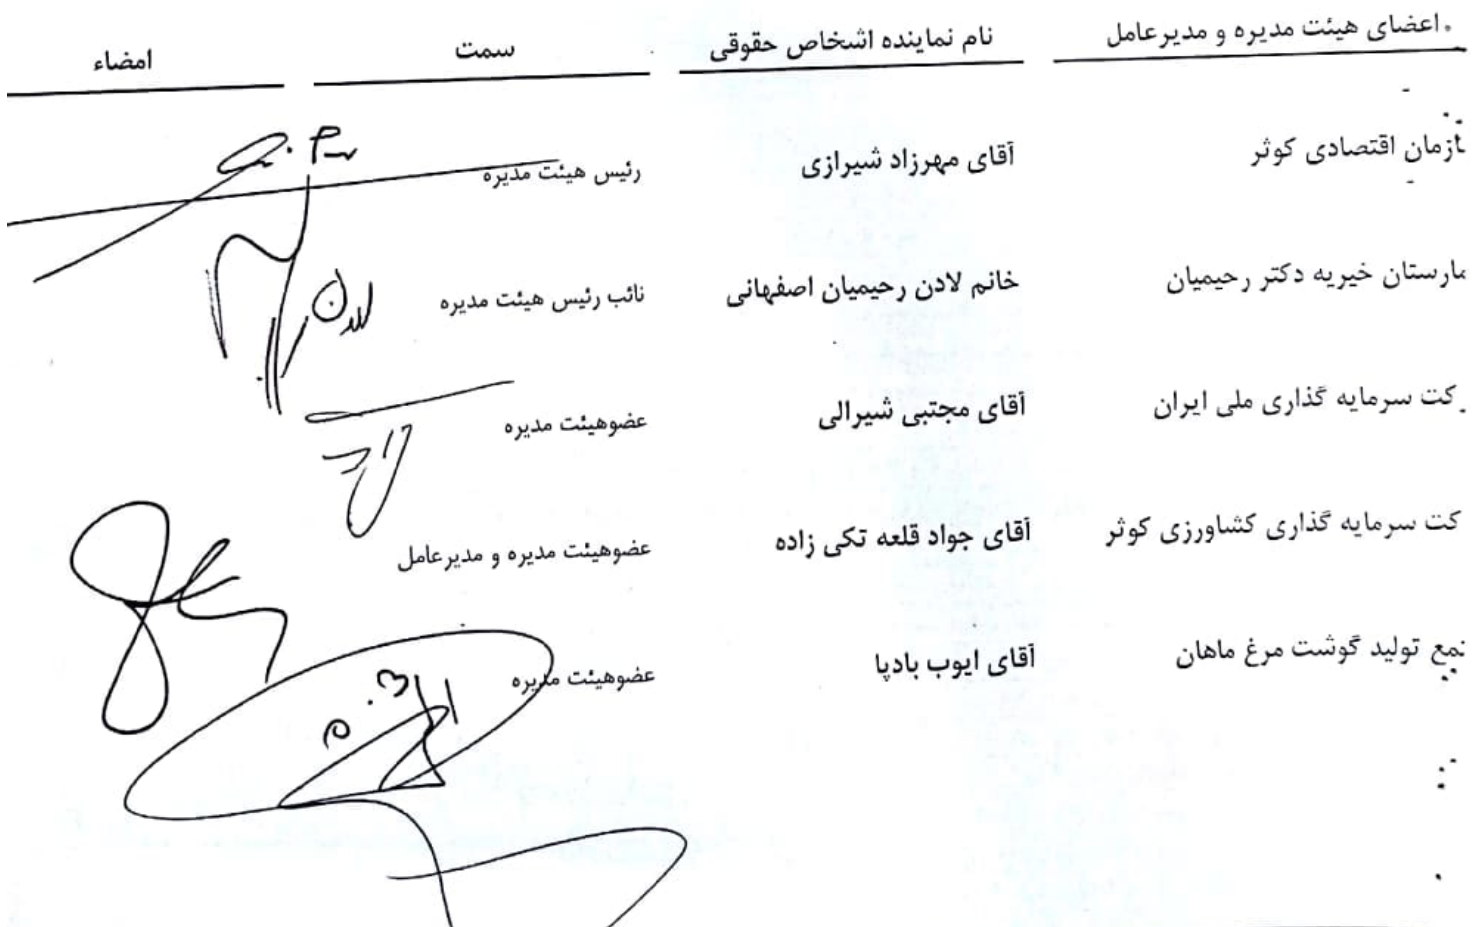 اعضای هیئت مدیره و مدیرعامل نام نماینده اشخاص حقوقی سمت امضاء
ازمان اقتصادی کوثر آقای مهرزاد شیرازی رئیس هیئت مدیره
مارستان خیریه دکتر رحیمیان خانم لادن رحیمیان اصفهانی نائب رئیس هیئت مدیره
لادن
کت سرمایه گذاری ملی ایران آقای مجتبی شیرالی عضوهیئت مدیره
کت سرمایه گذاری کشاورزی کوثر آقای جواد قلعه تکی زاده عضوهیئت مدیره و مدیرعامل
تولید گوشت مرغ ماهان آقای ایوب بادپا عضوهیئت مدیره